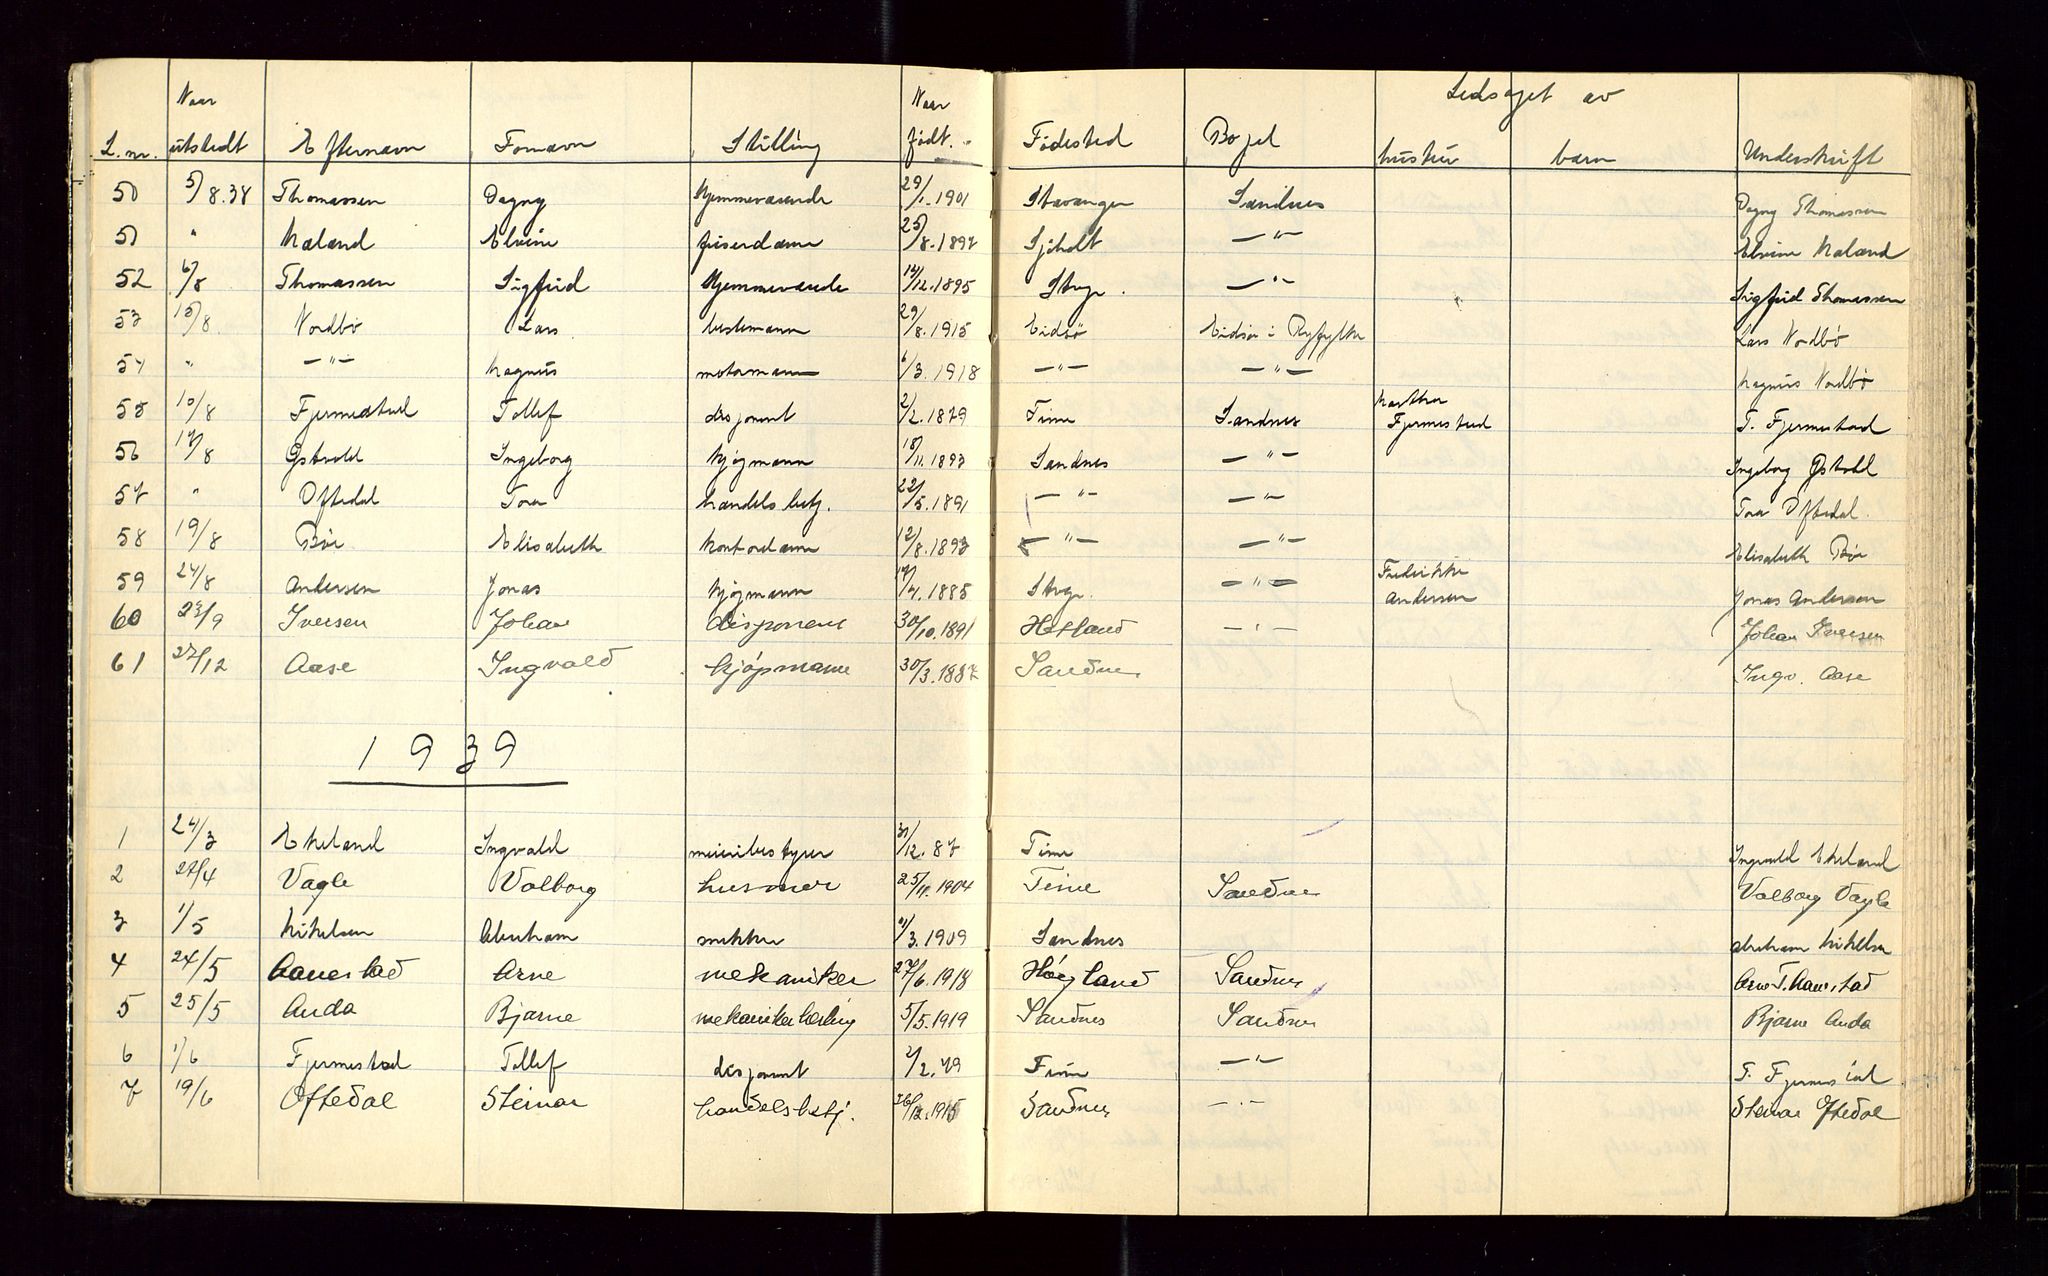 Ledsaget av
L.nr. Naar utstedt Efternavn Fornavn Stilling Naar født. Fødested Bopel hustru barn Underskrift
50 5/8.38 Thomassen Dagny Hjemmeværende 29/1.1901 Stavanger Sandnes Dagny Thomassen
51 " Maland Elvine frisердame 25/8.1897 Sjøholt — " — Elvine Maland
52 6/8 Thomassen Sigfrid Hjemmeværende 14/12.1895 Stvgr. — " — Sigfrid Thomassen
53 15/8. Nordbø Lars bestemann 29/8.1915 Eidsø Eidsø i Ryfylke Lars Nordbø
54 " — " — Magnus motormann 6/3.1918 — " — — " — Magnus Nordbø
55 10/8 Fjermestad Tollef disponent 2/2.1879 Time Sandnes Martha Fjermestad T. Fjermestad
56 17/8 Østvold Ingeborg kjøpmann 18/11.1893 Sandnes — " — Ingeborg Østvold
57 " Oftedal Tora handelsbetj. 22/5.1891 — " — — " — Tora Oftedal.
58 19/8 Bøe Elisabeth kontordame 12/8.1893 — " — — " — Elisabeth Bøe
59 24/8 Andersen Jonas kjøpmann 17/4.1885 Stvgr. — " — Fredrikke Andersen Jonas Andersen
60 23/9 Iversen Johan disponent 30/10.1891 Hetland — " — Johan Iversen
61 27/12 Aase Ingvald kjøpmann 30/3.1887 Sandnes Ingv. Aase
1939
1 24/3 Ekeland Ingvald meieribestyrer 31/12.87 Time Ingvald Ekeland
2 27/4 Vagle Valborg husmor 25/11.1904 Time Sandnes Valborg Vagle
3 1/5 Mikelsen Abraham snekker 9/3.1909 Sandnes Abraham Mikelsen
4 24/5 Aanestad Arne mekaniker 27/6.1918 Høyland Sandnes Arne T. Aanestad
5 25/5 Anda Bjarne mekanikerlærling 5/5.1919 Sandnes Sandnes Bjarne Anda
6 1/6 Fjermestad Tollef disponent 2/2.79 Time — " — T. Fjermestad
7 19/6 Oftedal Steinar handelsbetj. 26/12.1915 Sandnes — " — Steinar Oftedal